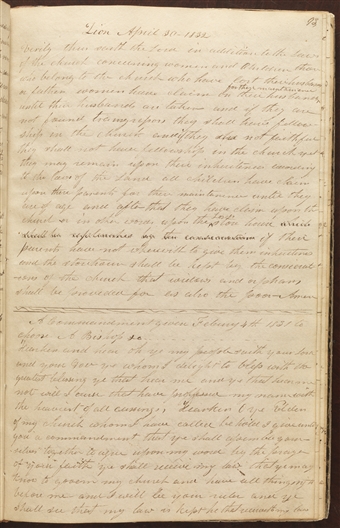 93
Zion April 30. 1832
Verily thus saith the Lord in addition to the laws
of the church concerning women and children those
who belong to the church who have lost their husbands
or fathers women have claim on their husbands
for their maintenance
until their husbands are taken and if they are
not found transgressors they shall have fellow
ship in the church and if they are not faithful
they shall not have fellowship in the church yet
they may remain upon their inheritances according
to the laws of the land all children have claim
upon their parents for their maintenance until they
are of age and after that they have claim upon the
church or in other words upon the Lord's store house
if their
parents have not wherewith to give them inheritances
and the storehouse shall be kept by the consecrat
ions of the church that widows and orphans
shall be provided for as also the poor Amen
A Commandment given February 4th 1831 to
A Bishop &c
Hearken and hear O ye my people saith your Lord
and your God ye whom I delight to bless with the
greatest blessings ye that hear me and ye that hear me
not will I curse that have professed my name with
the heaviest of all cursings, Hearken O ye Elders
of my church whom I have called behold I give unto
you a commandment that ye shall assemble your
selves together to agree upon my word by the prayer
of your faith ye shall receive my law that ye may
know to govern my church and have all things right
before me and I will be your ruler and ye
shall see that my law is kept he that